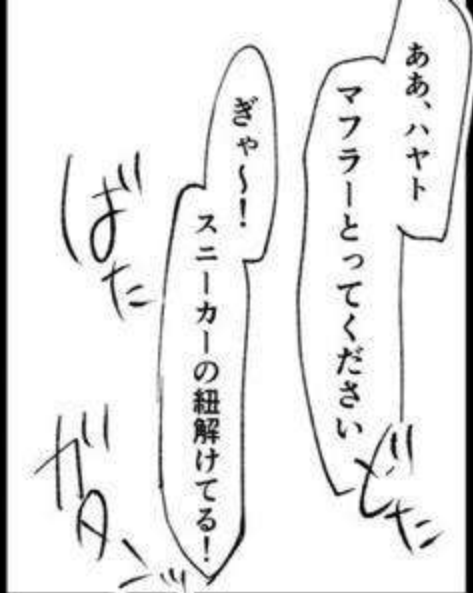 ああ、ハヤト
マフラーとってください
どた
ぎゃ～!
スニーカーの紐解けてる!
ばた
ガタン